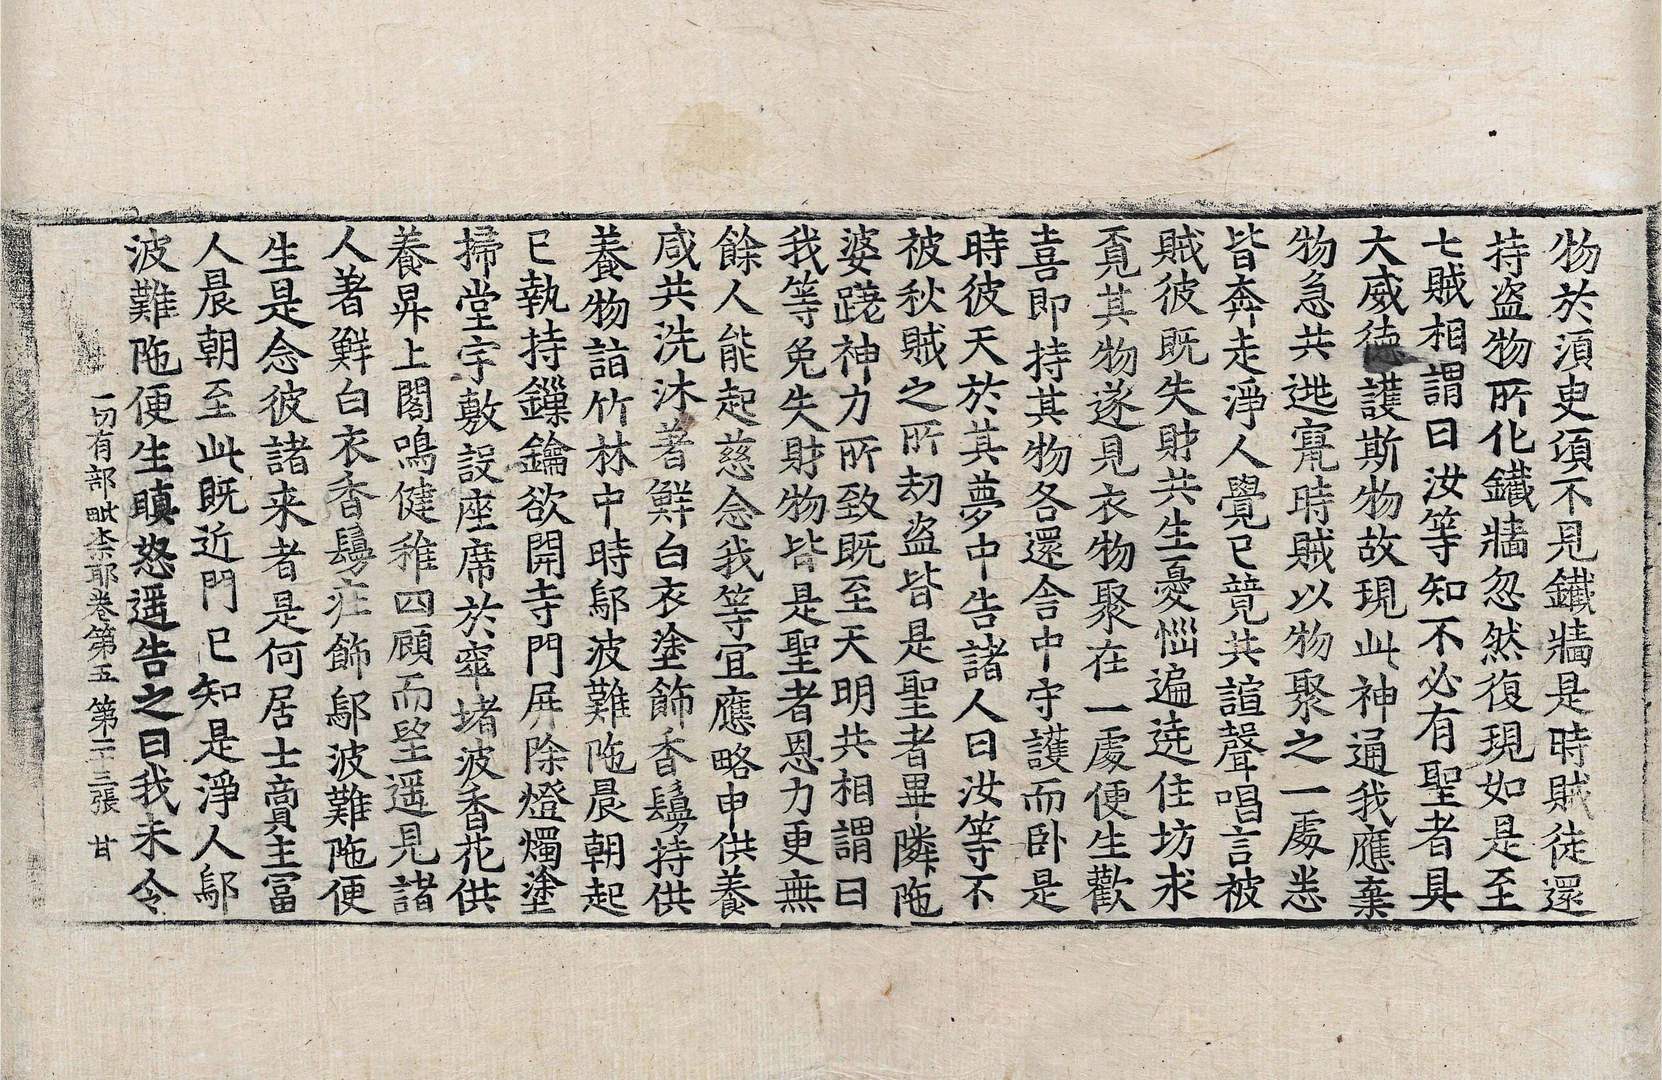 物於須臾須不見鐵牆是時賊徒還
持盜物所化鐵牆忽然復現如是至
七賊相謂曰汝等知不必有聖者具
大威德護斯物故現此神通我應棄
物急共逃竄時賊以物聚之一處恙
皆奔走淨人覺已競共諠聲唱言被
賊彼既失財共生憂惱遍遶住坊求
覓其物遂見衣物聚在一處便生歡
喜即持其物各還舍中守護而臥是
時彼天於其夢中告諸人曰汝等不
被秋賊之所劫盜皆是聖者畢隣陁
婆蹉神力所致既至天明共相謂曰
我等免失財物皆是聖者恩力更無
餘人能起慈念我等宜應略申供養
咸共洗沐著鮮白衣塗飾香鬘持供
養物詣竹林中時鄔波難陁晨朝起
已執持鏁鑰欲開寺門屏除燈燭塗
掃堂宇敷設座席於窣堵波香花供
養昇上閣鳴健稚四顧而望遥見諸
人著鮮白衣香鬘庄飾鄔波難陁便
生是念彼諸来者是何居士商主冨
人晨朝至此既近門已知是淨人鄔
波難陁便生瞋怒遥告之曰我未令
一切有部毗柰耶卷第五 第二十三張 甘